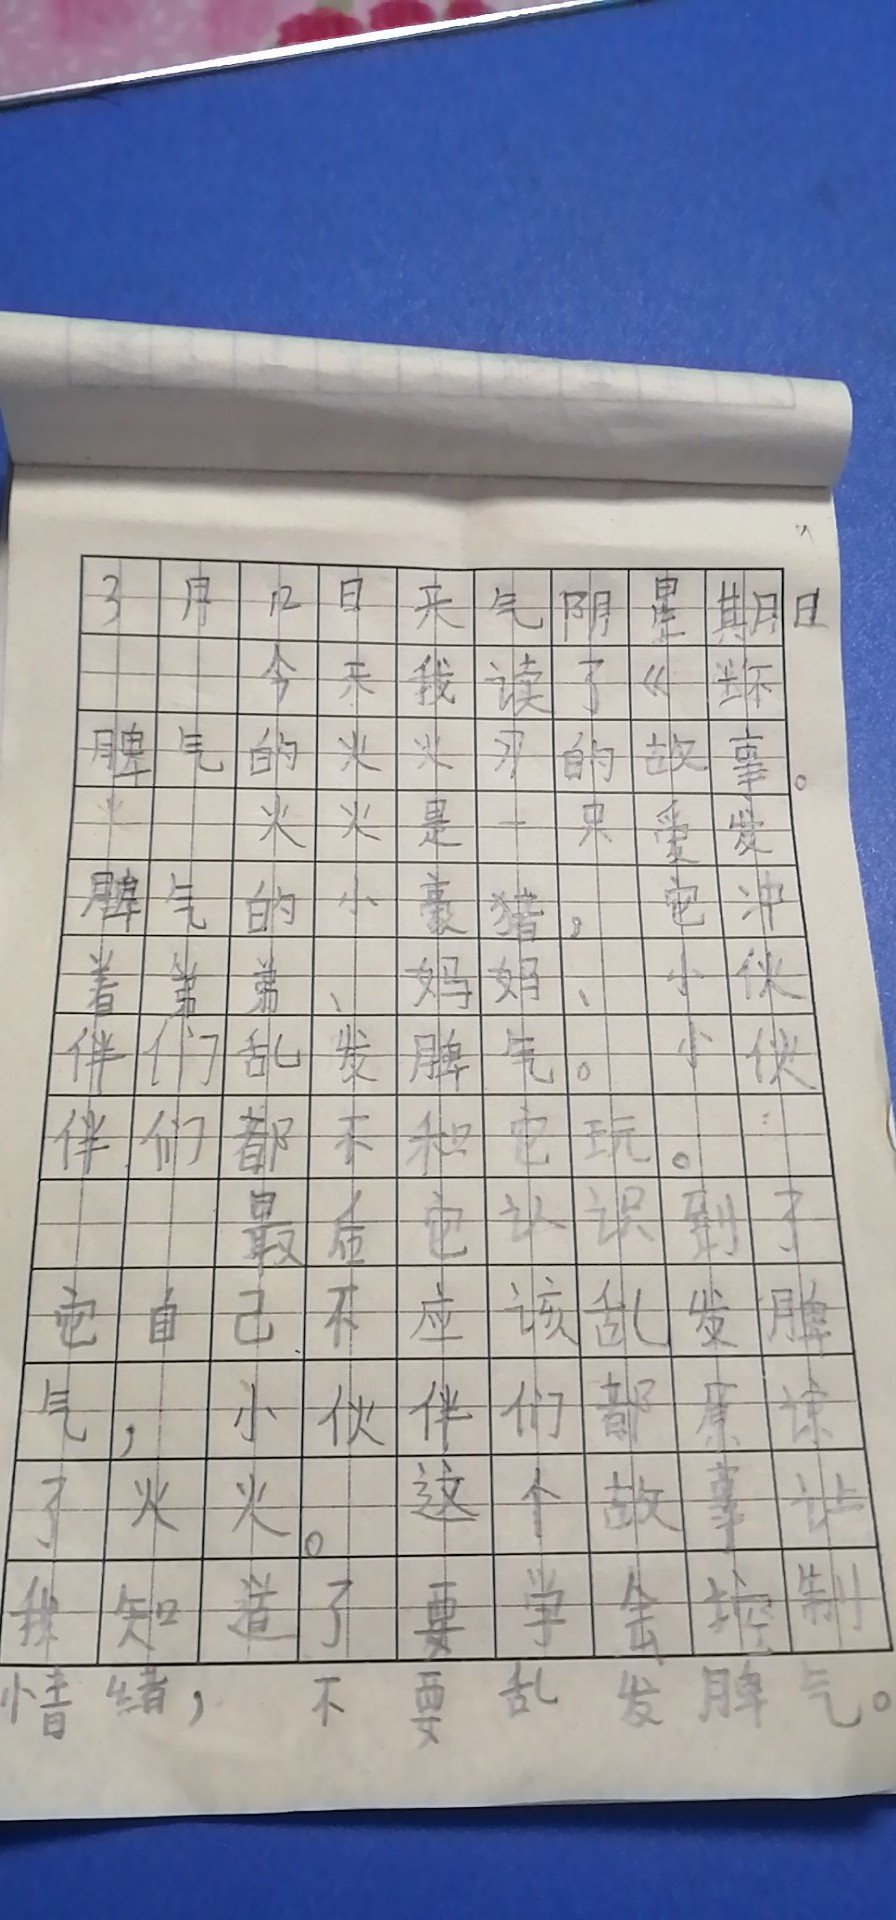 3月12日天气阴星期日
今天我读了《坏
脾气的火火》的故事。
火火是一只爱发
脾气的小豪猪,它冲
着弟弟、妈妈、小伙
伴们乱发脾气。小伙
伴们都不和它玩。
最后它认识到了
它自己不应该乱发脾
气,小伙伴们都原谅
了火火。这个故事让
我知道了要学会控制
情绪,不要乱发脾气。